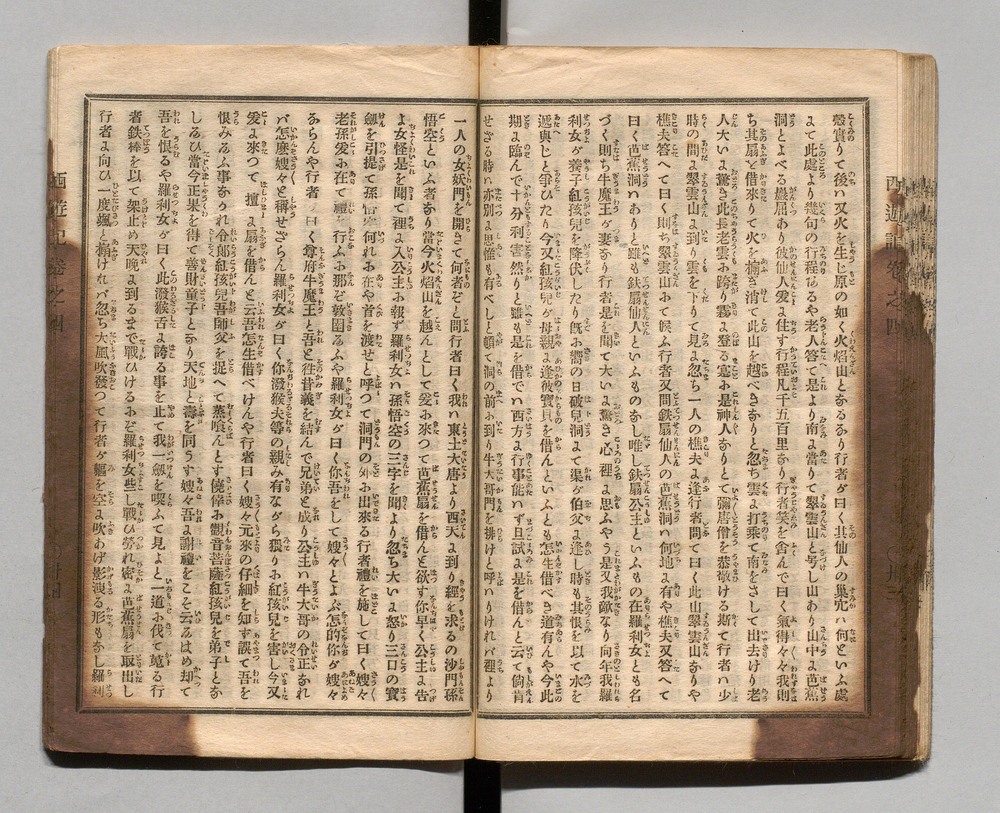 穀實りて後ハ又火を生じ原の如く火焰山となるなり行者が曰く其仙人の巢穴ハ何といふ處
よて此處より幾句の行程なるや老人答て是より南よ當りて翠雲山と号し山あり山中よ芭蕉
洞とよべる巖屈あり彼仙人爰よ住す行程凡千五百里なり行者笑を含んで曰く氣得々々我則
ち其扇を借來りて火を搧き消て此山を越べきなりと忽ち雲よ打乘て南をさして出去けり老
人大いよ驚き此長老雲よ跨り霧よ登る寔よ是神人なりとて彌唐僧を恭敬ける斯て行者ハ少
時の間よ翠雲山よ到り雲を下りて見よ忽ち一人の樵夫よ逢行者問て曰く此山翠雲山なりや
樵夫答へて曰く則ち翠雲山よて候ふ行者又問鉄扇仙人の芭蕉洞ハ何地よ有や樵夫又答へて
曰く芭蕉洞ハありと雖も鉄扇仙人といふものなし唯し鉄扇公主といふもの在羅利女とも名
づく則ち牛魔王が妻なり行者是を聞て大いよ驚き心裡よ思ふやう是又我敵なり向年我羅
利女が養子紅孩兒を降伏したり旣よ嚮の日破兒洞よて渠が伯父よ逢し時も其恨を以て水を
與じと爭ひたり今又紅孩兒が母親よ逢彼寳貝を借んといふとも怎生借べき道有んや今此
期よ臨んで十分利害然りと雖も是を借でハ西方よ行事能ハず且試よ是を借んと云て倘肯
せざる時ハ亦別よ思惟も有べしと頓て洞の前よ到り牛大哥門を排けと呼ハりけれバ裡より
一人の女妖門を開きて何者ぞと問行者曰く我ハ東土大唐より西天よ到り經を求るの沙門孫
悟空といふ者なり當今火焰山を越んとして爰よ來つて芭蕉扇を借んと欲す你早く公主よ告
よ女怪是を聞て裡よ入公主よ報ず羅利女ハ孫悟空の三字を聞より忽ち大いよ怒り三口の寶
劔を引提て孫悟空何れよ在や首を渡せと呼つて洞門の外よ出來る行者禮を施して曰く嫂々
老孫爰よ在て禮を行ふよ那ぞ敦圉るふや羅利女が曰く你吾をして嫂々とよぶ怎的你が嫂々
あらんや行者が曰く尊府牛魔王と吾と徃昔義を結んで兄弟と成り公主ハ牛大哥の令正なれ
バ怎麽嫂々と稱せざらん羅利女が曰く你潑猴夫等の親み有ながら獨りよ紅孩兒を害し今又
爰よ來つて擅よ扇を借んと云吾怎生借べけんや行者曰く嫂々元來の仔細を知ず誤て吾を
恨みるふ事なかれ令郎紅孩兒吾師父を捉へて蒸喰んとす僥倖よ觀音菩薩紅孩兒を弟子とな
しるひ當今正果を得て善財童子となり天地と壽を同うす嫂々吾よ謝禮をこそ云るはめ却て
吾を恨るや羅利女が曰く此潑猴舌よ誇る事を止て我一劔を喫ふて見よと一道よ伐て蒐る行
者鉄棒を以て架止め天晩よ到るまで戰ひけるよぞ羅利女些し戰ひ勞れ密よ芭蕉扇を取出し
行者よ向ひ一度颯と搧けれバ忽ち大風吹發つて行者が軀を空よ吹あげ影漠る形もなし羅利